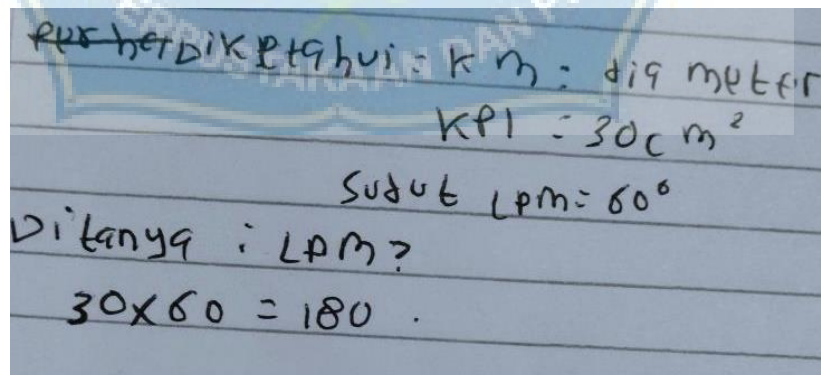 Diketahui : KM : diameter
KPl : 30cm²
Sudut LPM = 60°
Ditanya : LPM?
30x60 = 180 .